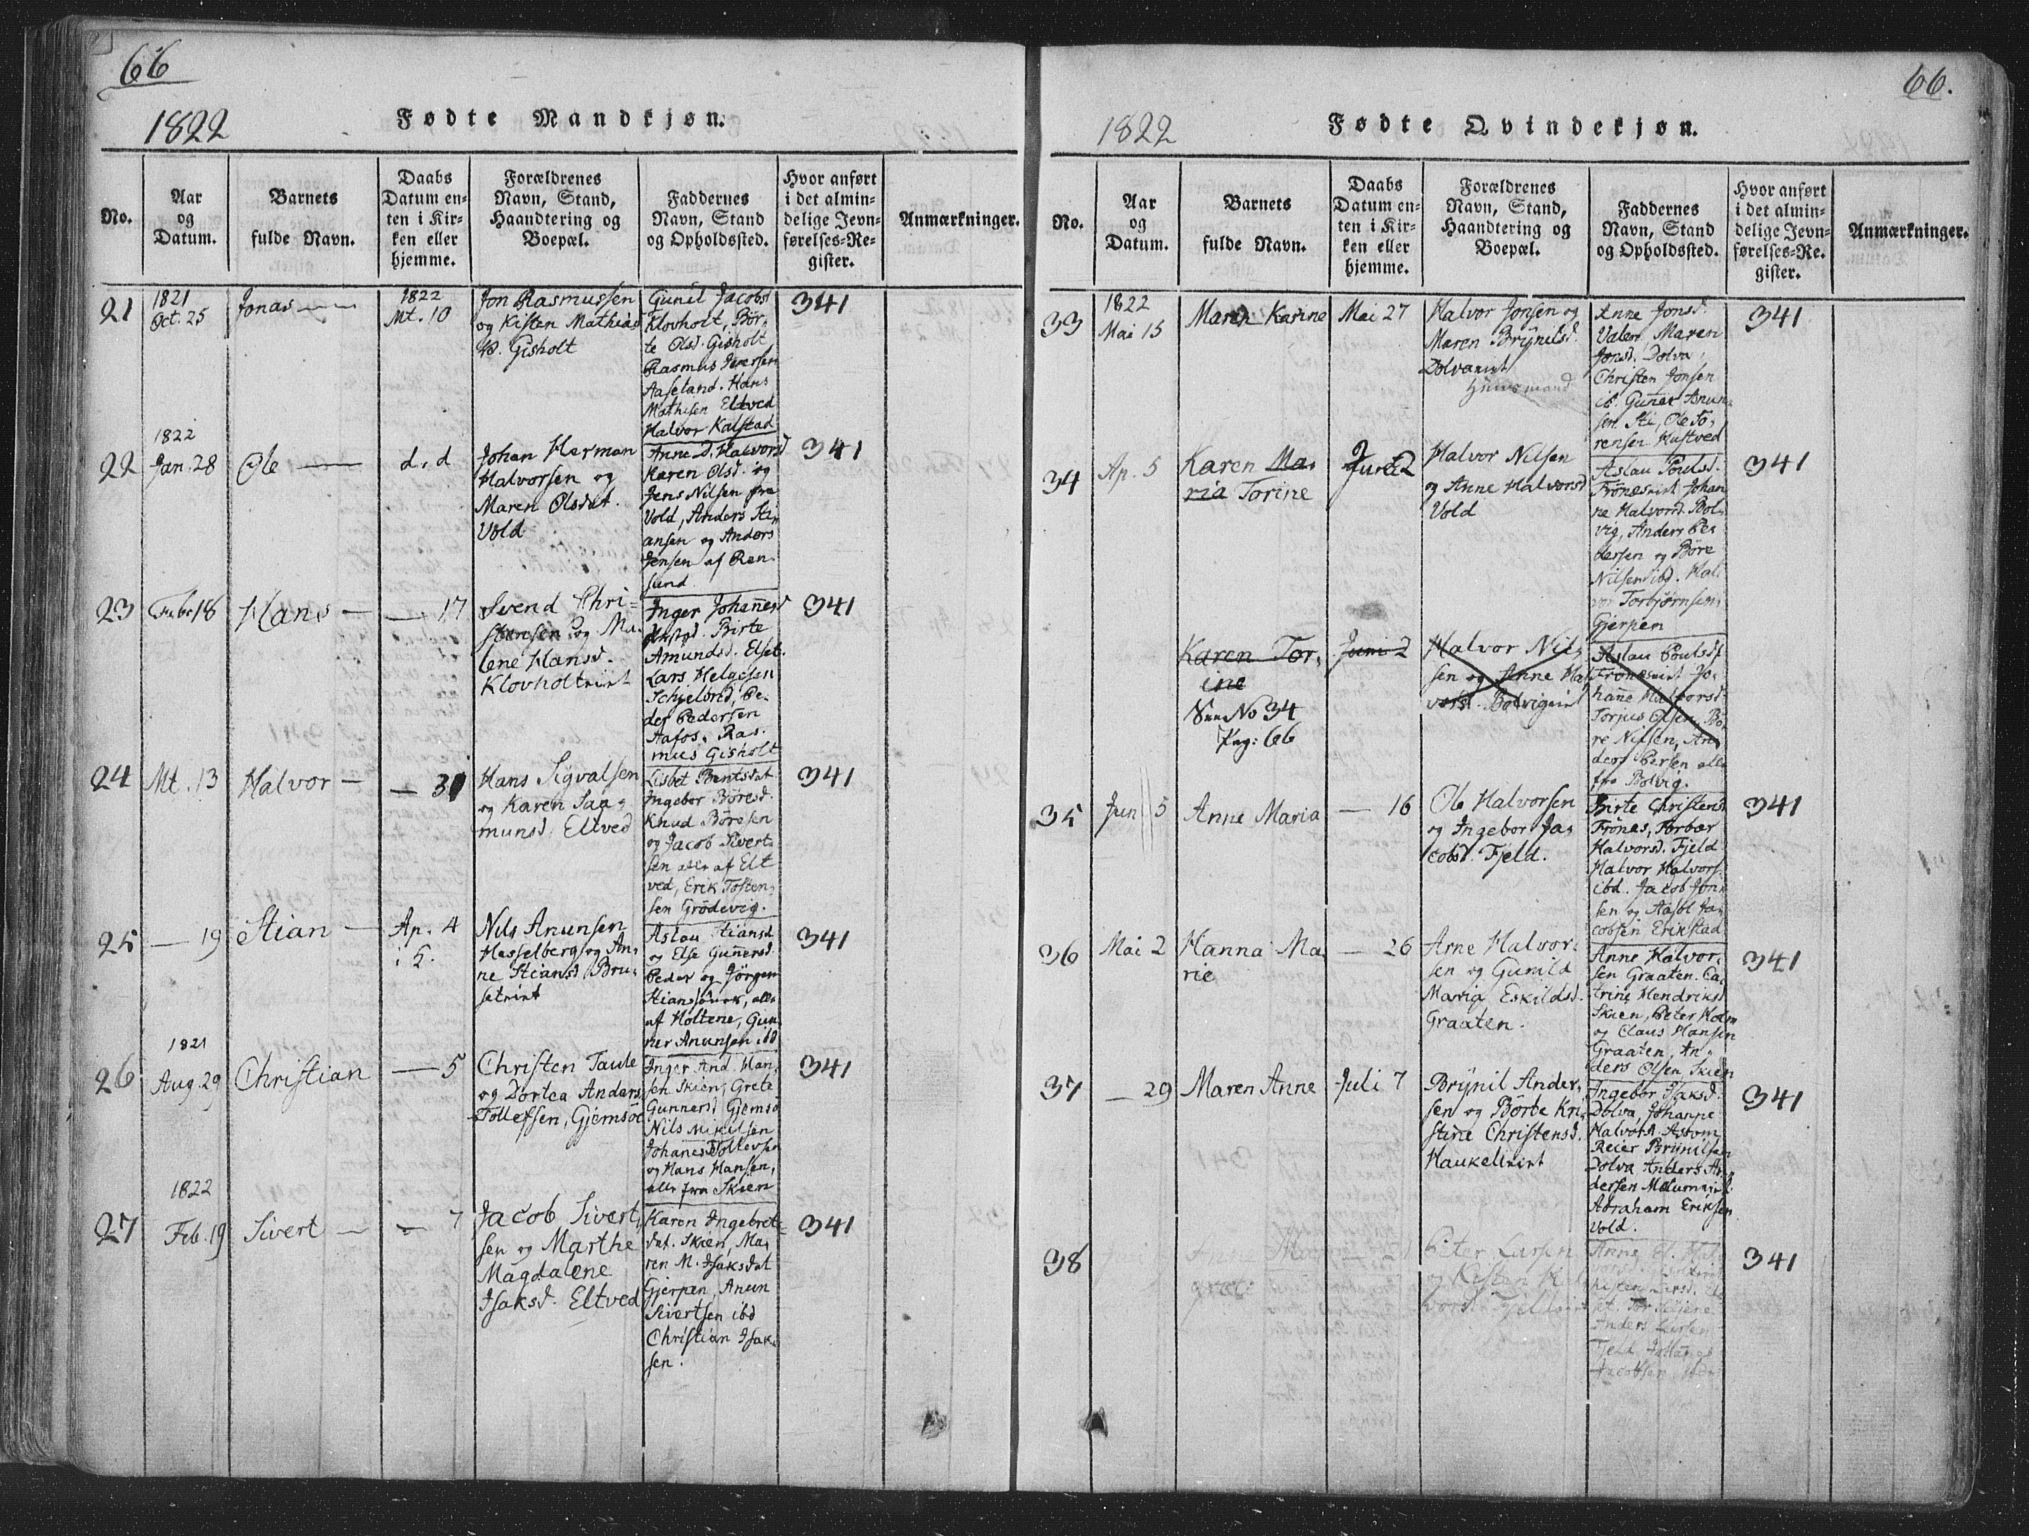 66
1822
Fødte Mandkjøn.
No.
Aar
og
Datum.
Barnets
fulde Navn.
Daabs
Datum en-
ten i Kir-
ken eller
hjemme.
Forældrenes
Navn, Stand,
Haandtering og
Boepæl.
Faddernes
Navn, Stand
og Opholdssted.
Hvor anført
i det almin-
delige Jevn-
førelses-Re-
gister.
Anmærkninger.
21
1821
Oct. 25
Jonas
1822
Mt. 10
Jon Rasmussen
og Kisten Mathias
Gisholt
Gunil Jacobsd
Klovholt, Bör-
te Olsd. Gisholt
Rasmus Iversen
Aaseland. Hans
Mathisen Eltved
Halvor Kalstad
341
22
1822
Jan. 28
Ole
d. d
Johan Herman
Halvorsen og
Maren Olsdat.
Vold
Anne D. Halvorsd
Karen Olsd. og
Jens Nilsen fra
Vold, Anders Sti-
ansen og Anders
Jensen af Ren-
sund
341
23
Febr 18
Hans
17
Svend Chri-
stensen og Ma-
lene Hansd.
Klovholteiet
Inger Johannesd
Birte
Amundsd. Elset.
Lars Helgesen
Pe-
der Pedersen
Aafos, Ras-
mus Gisholt
341
24
Mt. 13
Halvor
31
Hans Sigvalsen
og Karen Saa-
munsd. Eltved
Lisbet Bentsdat
Ingebor Böresd.
Knud Böresen
og Jacob Sivert-
sen alle af Elt
ved, Erik Tosten-
sen Grödevig.
341
25
19
Stian
Ap. 4
i K.
Nils Anunsen
Hasselberg og An-
ne Stiansd. Bru-
seteiet
Aslau Stiansd
og Else Gunersd.
Peder og Jörgen
Stiansöner, alle
af Holtene, Gun-
ner Anunsen ibd
341
26
1821
Aug. 29
Christian
5
Christen Taule
og Dortea Anders
Tollefsen, Gjemsöe
Inger And. Han-
sen Skien, Grete
Gunnersd Gjemsö
Nils Mikilsen
Johanes Tollevsen
og Hans Hansen,
alle fra Skien
341
27
1822
Feb. 19
Sivert
7
Jacob Sivert-
sen og Marthe
Magdalene
Isaksd. Eltved
Karen Ingebret-
dat. Skien, Ma-
ren M. Isaksdat
Gjerpen, Anun
Sivertsen ibd
Christian Isak-
sen.
341
66.
1822
Fødte Qvindekjøn.
No.
Aar
og
Datum.
Barnets
fulde Navn.
Daabs
Datum en-
ten i Kir-
ken eller
hjemme.
Forældrenes
Navn, Stand,
Haandtering og
Boepæl.
Faddernes
Navn, Stand
og Opholdssted.
Hvor anført
i det almin-
delige Jevn-
førelses-Re-
gister.
Anmærkninger.
33
1822
Mai 15
Maren Karine
Mai 27
Halvor Jonsen og
Maren Brÿnilsd.
Dolvaeiet
Huusmand
Anne Jonsd.
Valen Maren
Jonsd. Dolva,
Christen Jonsen
ib. Guner Anun-
sen Sti, Ole To-
rensen Kustved
341
34
Ap. 5
Karen Ma-
ria Torine
Juni 2
Halvor Nilsen
og Anne Halvorsd
Vold
Aslau Poulsd.
Frönæseiet Johan
ne Halvorsd. Bol-
vig, Anders Pe-
dersen og Böre
Nilsen ibd. Hal-
vor Torbjörnsen,
Gjerpen
341
Karen Tor-
ine
See No 34
Pag: 66
Juni 2
Halvor Nil-
sen og Anne Hal
vorsd. Bolvigeiet
Aslau Poulsd
Frönæseiet Jo-
hane Halvorsd.
Torjus Olsen, Bö-
re Nilsen, An
ders Persen alle
fra Bolvig.
35
Jun 5
Anne Maria
16
Ole Halvorsen
og Ingebor Ja-
cobsd. Fjeld.
Birte Christensd
Frönæs, Torbær
Halvorsd. Fjeld
Halvor Halvors.
ibd. Jacob Jon-
sen og Aasol Ja-
cobsen Erikstad
341
36
Mai 2
Hanna Ma
rie
26
Arne Halvor-
sen og Gunild
Maria Eskildsd.
Graaten.
Anne Halvor-
sen Graaten. Ca-
trine Hendriksd
Skien, Peter Holm
og Claus Hansen
Graaten, An-
ders Olsen, Skien
341
37
29
Maren Anne
Juli 7
Brÿnil Ander-
sen og Börte Kri-
stine Christensd.
Haukelieiet
Ingebor Isaksd.
Dolva, Johanne
Halvorsd.
Reier Brÿnilsen
Dolva Anders An
dersen
Abraham Eriksen
Vold.
341
38
Anne
Peter Larsen
og Kisten
Fjeldeiet
Anne
Anders Larsen
Fjeld
Jacobsen ibd
341